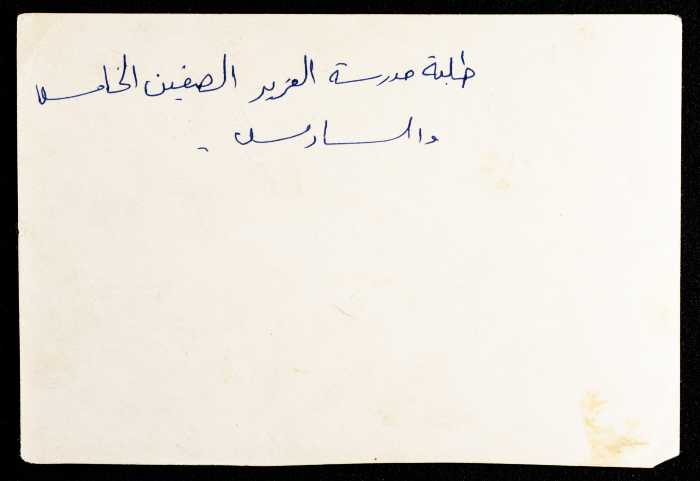 طلبة مدرسة الفرير الصفين الخامس
والسادس .